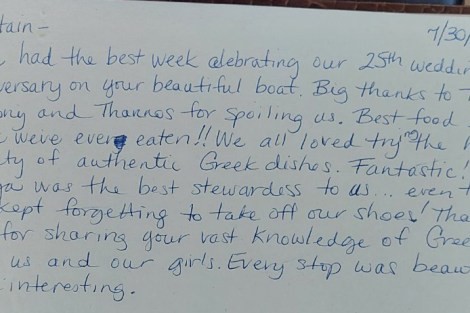 tain - 7/30/
had the best week celebrating our 25th weddin
versary on your beautiful boat. Big thanks to T
ony and Thannos for spoiling us. Best food
weve ever eaten!! We all loved trying the
ty of authentic Greek dishes. Fantastic!
ga was the best stewardess to us... even t
kept forgetting to take off our shoes! Tha
for sharing your vast knowledge of Gree
us and our girls. Every stop was beau
interesting.